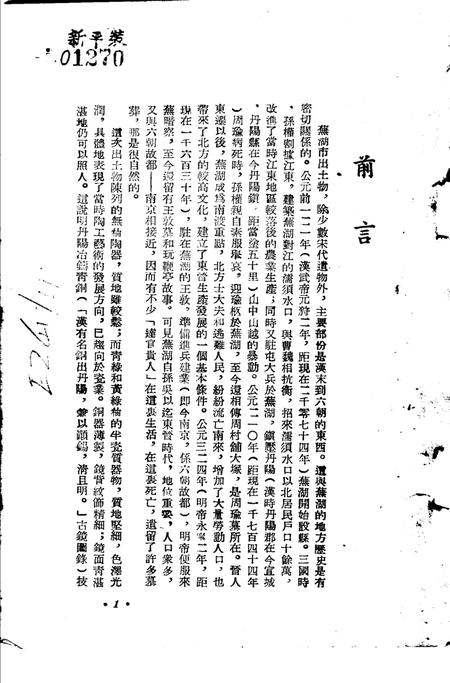 新平装
01270
前言
蕪湖市出土物,除少數宋代遺物外,主要部份是漢末到六朝的東西。這與蕪湖的地方歷史是有
密切關係的。公元前一二一年(漢武帝元狩二年,距現在二千零七十四年)蕪湖開始設縣。三國時
、孫權割據江東,建築蕪湖對江的濡須水口,與曹魏相抗衡,招來濡須水口以北居民戶口十餘萬,
改進了當時江東地區較落後的農業生產;同時又駐屯大兵於蕪湖,鎮壓丹陽(漢時丹陽郡在今宣城
、丹陽縣在今丹陽鎮,距當塗五十里)山中山越的暴動。公元二一〇年(距現在一千七百四十四年
)周瑜病死時,孫權親自素服舉哀,迎瑜柩於蕪湖,至今還相傳周村鋪大塚,是周瑜墓所在。晉人
東遷以後,蕪湖成爲南渡重點,北方士大夫和逃難人民,紛紛流亡南來,增加了大量勞動人口,也
帶來了北方的較高文化,建立了東晉生產發展的一個基本條件。公元三二四年(明帝永昌二年,距
現在一千六百三十年),駐在蕪湖的王敦,準備進兵建業(即今南京,係六朝故都),明帝便服來
蕪暗察,至今還留有王敦墓和玩鞭亭故事。可見蕪湖自孫吳以迄東晉時代,地位重要,人口衆多,
又與六朝故都——南京相接近,因而有不少「達官貴人」在這裏生活,在這裏死亡,遺留了許多墓
葬,那是很自然的。
這次出土物陳列的無釉陶器,質地雖較鬆;而青綠和黃綠釉的半瓷質器物,質地堅細,色澤光
潤,具體地表現了當時陶工藝術的發展方向,已趨向於瓷業。銅器薄製,鏡背紋飾精細;鏡面青湛
湛地仍可以照人。這說明丹陽冶鑄青銅(「漢有名銅出丹陽,參以銀錫,清且明。」古鏡圖錄)技
·1·